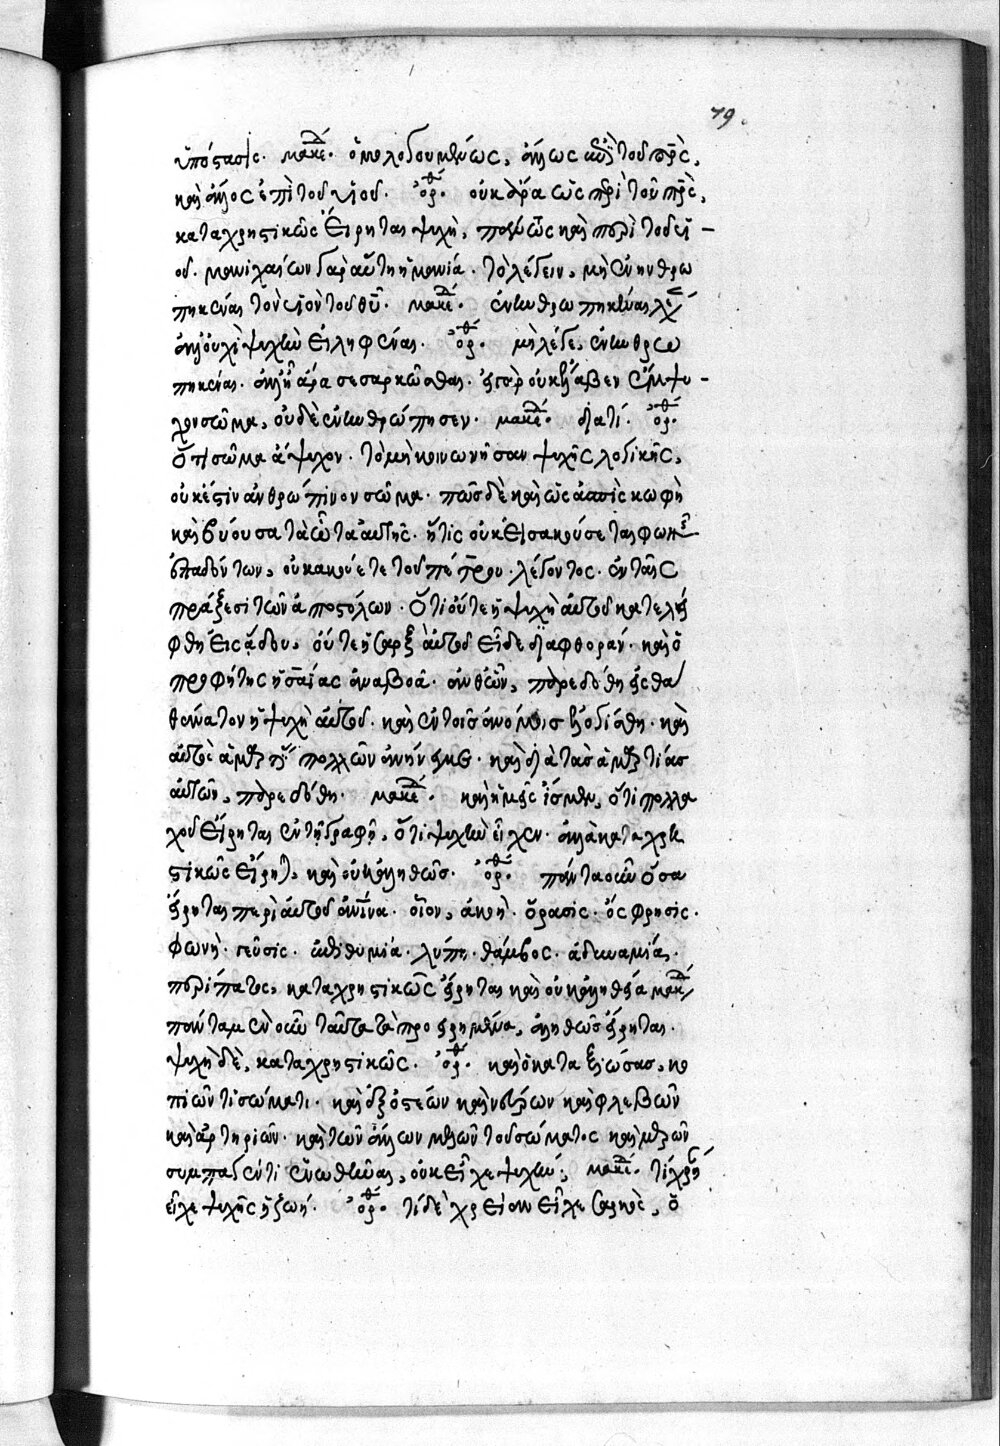 79.
ὑπόστασις. μακε. ὁμολογουμένως, ἄλλως ἐπὶ τοῦ πρς,
καὶ ἄλλος ἐπὶ τοῦ υἱοῦ. ὀρθ. οὐκ ἄρα ὡς περὶ τοῦ πρς,
καταχρηστικῶς εἴρηται ψυχὴ, πάντως καὶ περὶ τοῦ υἱ-
οῦ. μανιχαίων γὰρ αὕτη ἡ μανία. τὸ λέγειν, μὴ ἐνηνθρω
πηκέναι τὸν υἱὸν τοῦ θυ. μακε. ἐνανθρωπηκέναι λέγ
ἀλλ' οὐχὶ ψυχὴν εἰληφέναι. ὀρθ. μὴ λέγε, ἐνανθρω
πηκέναι. ἀλλ' ἢ ἄρα σεσαρκῶσθαι. ὥσπερ οὐκ ἔλαβεν ἔμψυ-
χον σῶμα, οὐδὲ ἐνανθρώπησεν. μακε. διατί. ὀρθ.
ὅτι σῶμα ἄψυχον. τὸ μὴ κοινωνῆσαν ψυχῆς λογικῆς,
οὐκ ἔστιν ἀνθρώπινον σῶμα. πῶς δὲ καὶ ὡς ἀσπὶς κωφὴ
καὶ βύουσα τὰ ὦτα αὐτῆς. ἥτις οὐκ εἰσακούσεται φωνῆς
ἐπαδόντων, οὐκ ἀκούετε τοῦ πέτρου λέγοντος. ἐν ταῖς
πράξεσι τῶν ἀποστόλων. ὅτι οὔτε ἡ ψυχὴ αὐτοῦ κατελή
φθη εἰς ᾅδου, οὔτε ἡ σαρξ αὐτοῦ εἶδε διαφθοράν. καὶ ὁ
προφήτης ἡσαΐας ἀναβοᾶ. ἀνθ' ὧν, παρεδόθη εἰς θά
θάνατον ἡ ψυχὴ αὐτοῦ. καὶ ἐν τοῖς ἀνόμοις ἐλογίσθη. καὶ
αὐτὸς ἁμρτ πολλῶν ἀνήνεγκε. καὶ διὰ τὰς ἁμρτίας
αὐτῶν, παρεδόθη. μακε. καὶ ἡμεῖς ἴσμεν, ὅτι πολλα
χοῦ εἴρηται ἐν τῇ γραφῇ, ὅτι ψυχὴν εἶχεν. ἀλλὰ καταχρη
στικῶς εἴρηται, καὶ οὐκ ἀληθῶς. ὀρθ. πάντα οὖν ὅσα
εἴρηται περὶ αὐτοῦ ἀνίνα. οἷον, ἀκοὴ. ὅρασις. ὄσφρησις.
φωνὴ. γεῦσις. ἐπιθυμία. λύπη. θάμβος. ἀδυναμία.
περίπατος, καταχρηστικῶς εἴρηται καὶ οὐκ ἀληθεία μακε
πάντα μὲν οὖν ταῦτα τὰ προειρημένα, ἀληθῶς εἴρηται.
ψυχὴ δὲ, καταχρηστικῶς. ὀρθ. καὶ ὁ καταξιώσας, κο
πιῶντι σώματι. καὶ ἐξ ὀστέων καὶ νεύρων καὶ φλεβῶν
καὶ ἀρτηριῶν. καὶ τῶν ἄλλων μελῶν τοῦ σώματος καὶ μερῶν
συμπαγέντι ἑνωθῆναι, οὐκ εἶχε ψυχήν; μακε. τί χρεία
εἶχε ψυχῆς ἡ ζωή. ὀρθ. τί δὲ χρείαν εἶχε σαρκὸς, ὁ